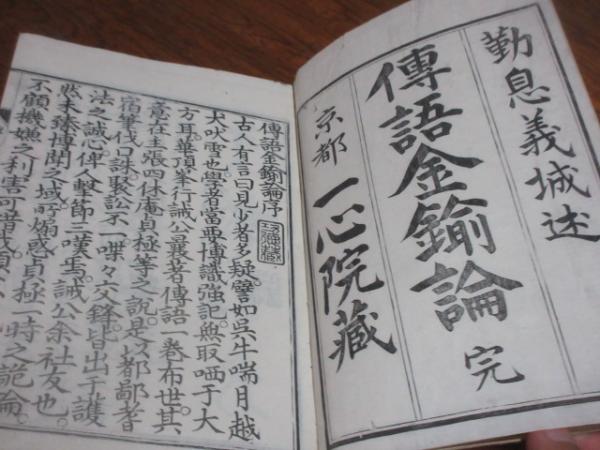 勤息義城述
傳語金鍮論 完
京都 一心院藏
傳語金鍮論序
古人有言曰見少者多疑譬如呉牛喘月越
犬吠雪也學者當要博識強記無取哂于大
方耳華頂峯行誡公曩者傳語一卷布世其
意在主張四休庵貞極等之說是以都鄙者
宿筆伐口誅聚訟不一喋々交鋒皆出于護
法之誠心俾人擊節三嘆焉誡公余社友也
然未臻博聞之域所煽惑貞極一時之詭論
不顧機嫌之利害可惜哉